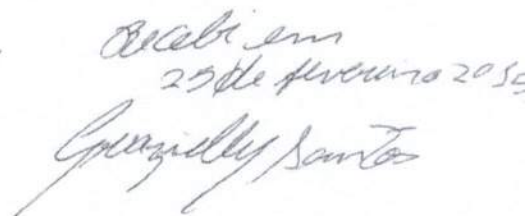 Recebi em
25 de fevereiro
Grazielly Santos